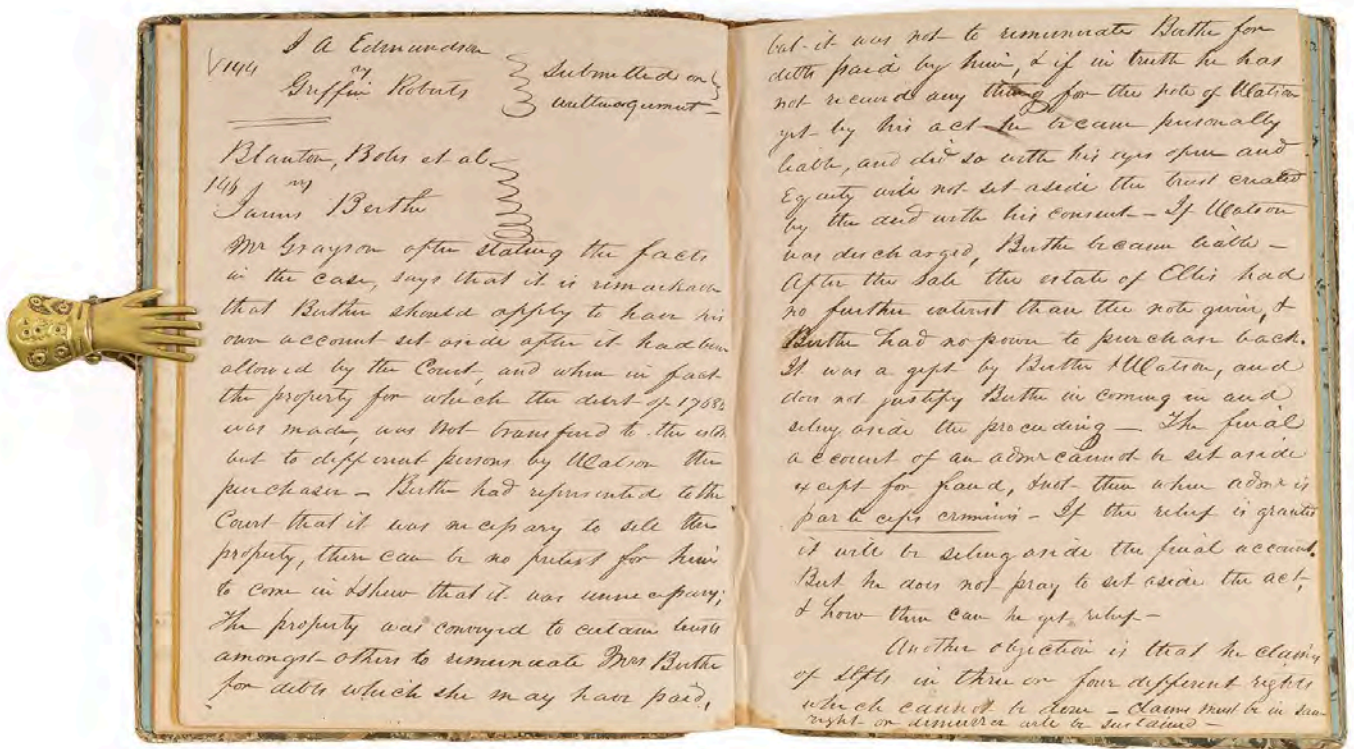 J A Edmundson
√144 vs
Griffin Roberts
Submitted on
written argument—
Blanton, Bohs et al
146 vs
James Berthe
Mr Grayson after stating the facts
in the case, says that it is remarkable
that Berthe should apply to have his
own account set aside after it had been
allowed by the Court, and when in fact
the property for which the debt of 1768
was made, was not transferd to the estate
but to different persons by Watson the
purchaser — Berthe had represented to the
Court that it was necessary to sell the
property, there can be no pretext for him
to come in & shew that it was unnecessary;
The property was conveyed to certain trusts
amongst others to remunerate Mrs Berthe
for debts which she may have paid,
but it was not to remunerate Berthe for
debts paid by him, & if in truth he has
not receivd any thing for the note of Watson
yet by his act he became personally
liable, and did so with his eyes open and
Equity will not set aside the trust created
by the deed with his consent — If Watson
was discharged, Berthe became liable —
After the Sale the estate of Ellis had
no further interest than the note given, &
Berthe had no power to purchase back.
It was a gift by Berthe & Watson, and
does not justify Berthe in coming in and
seting aside the proceeding — The final
account of an admr cannot be set aside
except for fraud, & not then when admr is
particeps criminis — If the relief is granted
it will be seting aside the final account.
But he does not pray to set aside the act,
& how then can he get relief —
Another objection is that he claims
of Defts in three or four different rights
which cannot be done — Claims must be in same
right or demurrer will be sustained —